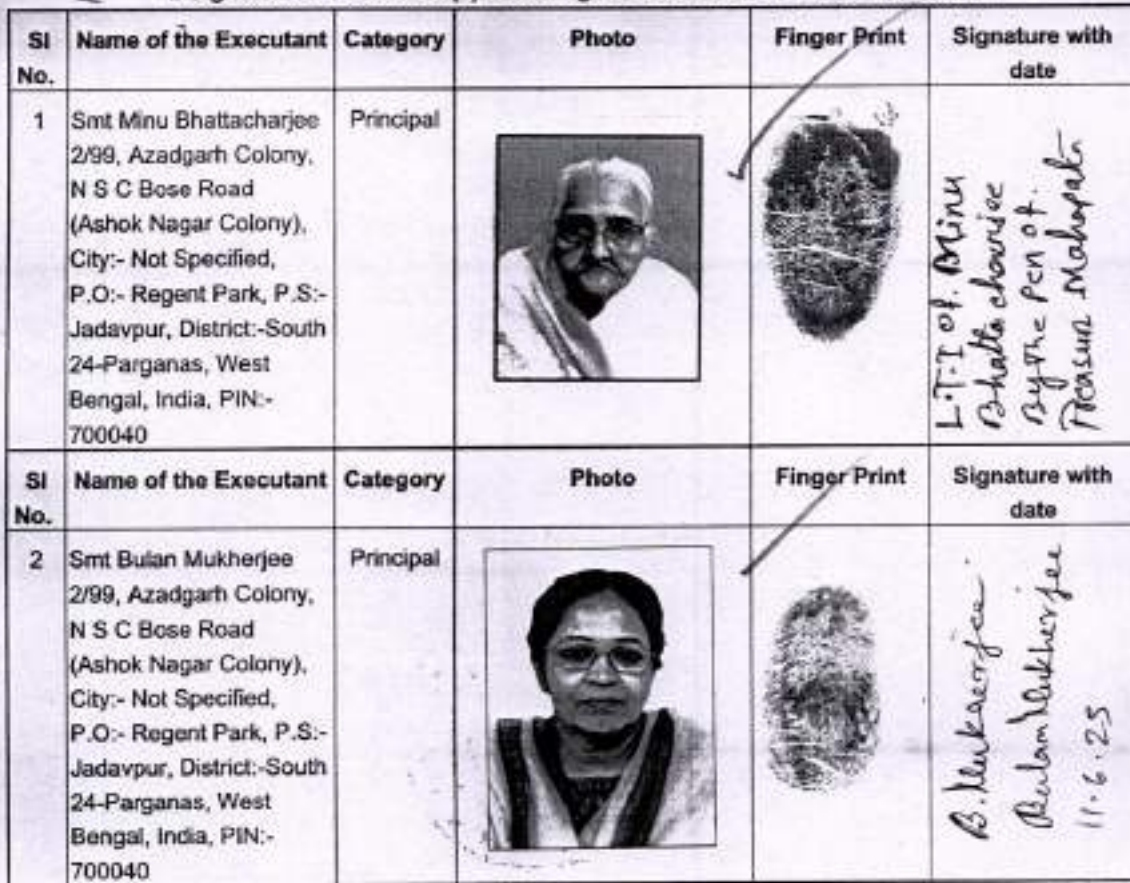 Sl No. Name of the Executant Category Photo Finger Print Signature with date
1 Smt Minu Bhattacharjee Principal
2/99, Azadgarh Colony,
N S C Bose Road
(Ashok Nagar Colony),
City:- Not Specified,
P.O:- Regent Park, P.S:-
Jadavpur, District:-South
24-Parganas, West
Bengal, India, PIN:-
700040
L.T.I of. Minu
Bhattacharjee
By the Pen of.
Mahapatra
Sl No. Name of the Executant Category Photo Finger Print Signature with date
2 Smt Bulan Mukherjee Principal
2/99, Azadgarh Colony,
N S C Bose Road
(Ashok Nagar Colony),
City:- Not Specified,
P.O:- Regent Park, P.S:-
Jadavpur, District:-South
24-Parganas, West
Bengal, India, PIN:-
700040
B. Mukherjee
Bulan Mukherjee
11.6.25